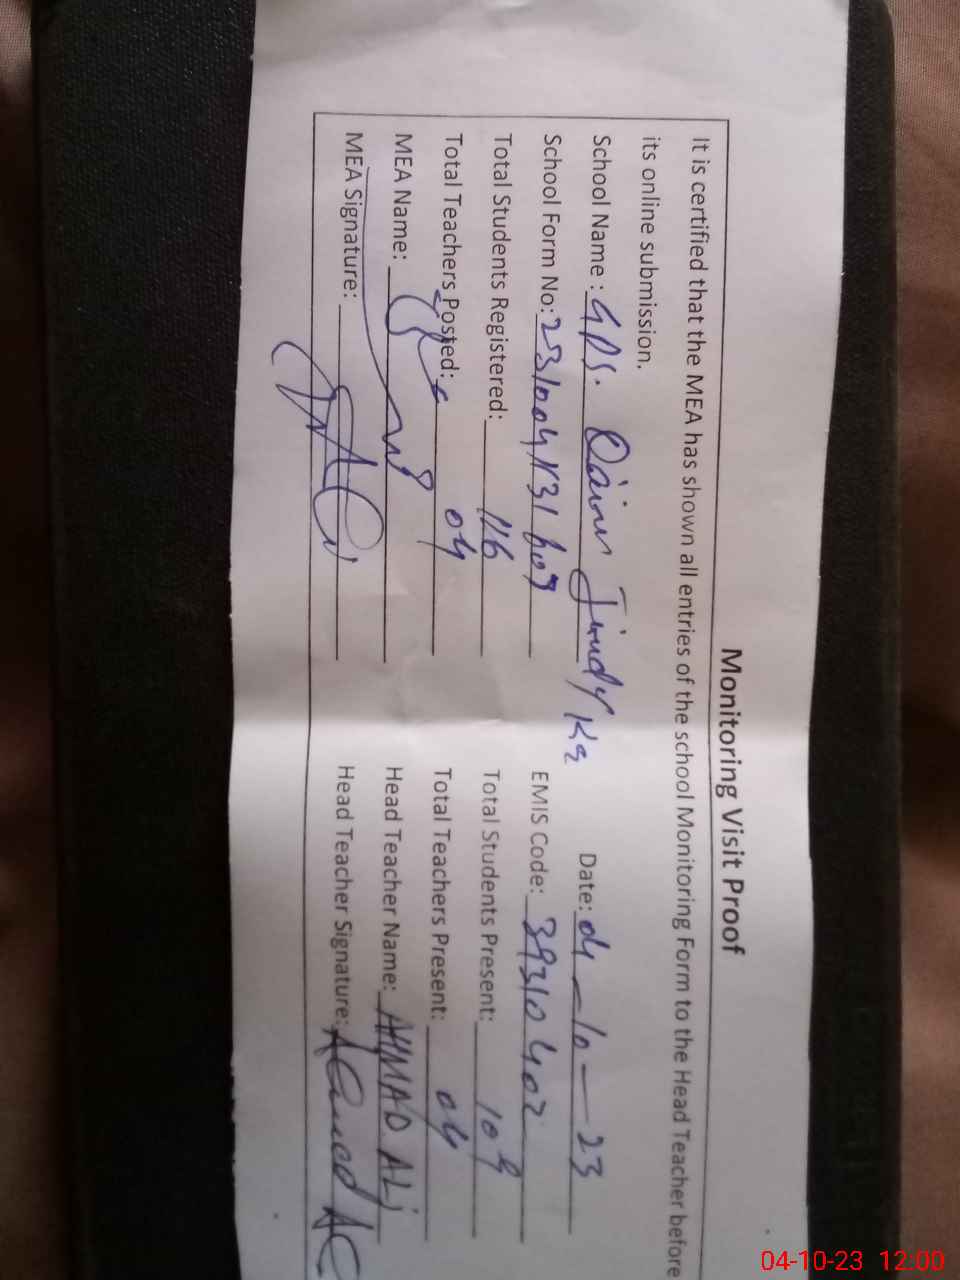 Monitoring Visit Proof
It is certified that the MEA has shown all entries of the school Monitoring Form to the Head Teacher before
its online submission.
School Name : GPS. Jindy Ka Date: 04-10-23
School Form No: EMIS Code: 39310402
Total Students Registered: 116 Total Students Present: 109
Total Teachers Posted: 04 Total Teachers Present: 04
MEA Name: Head Teacher Name: AHMAD ALi
MEA Signature: Head Teacher Signature: Ahmed
04-10-23 12:00